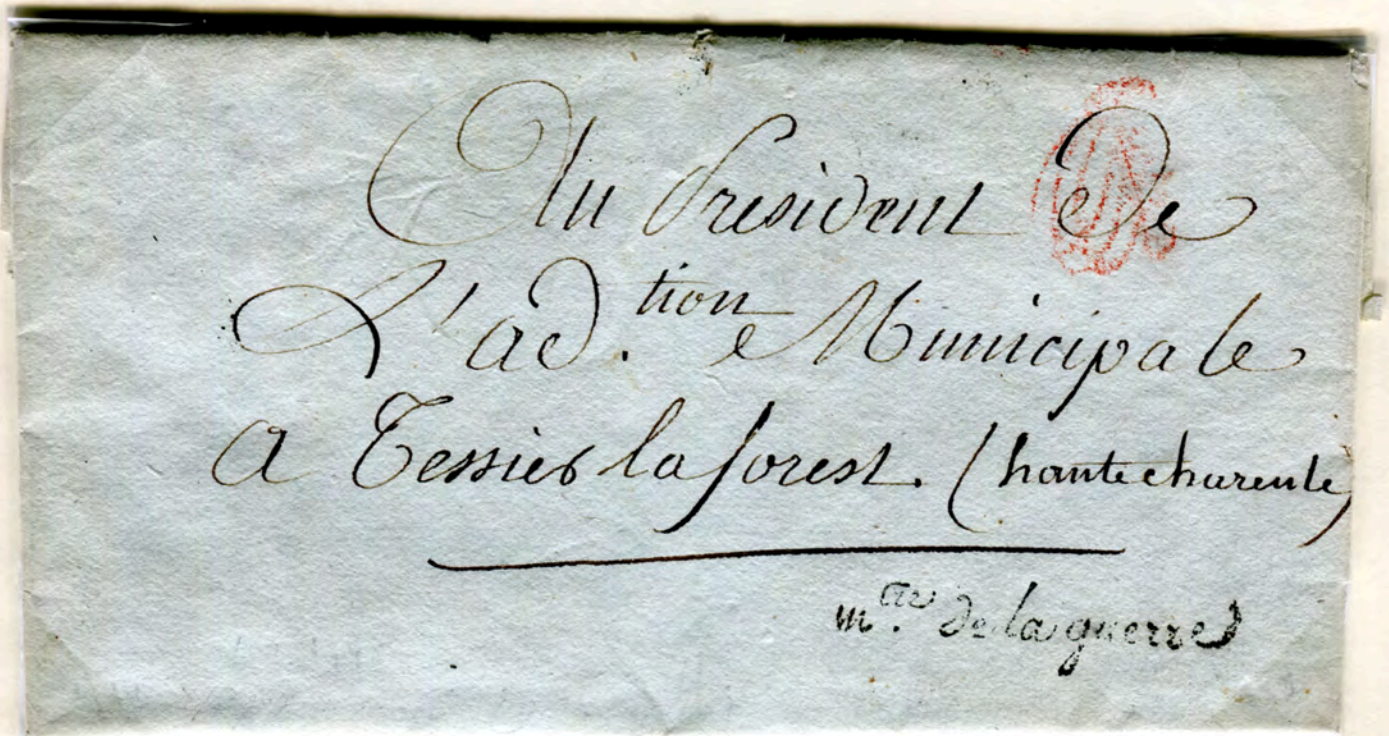 Au Président De
L'ad.tion Municipale
a Tessier laforest. (hautecharente)
m.ere De la guerre